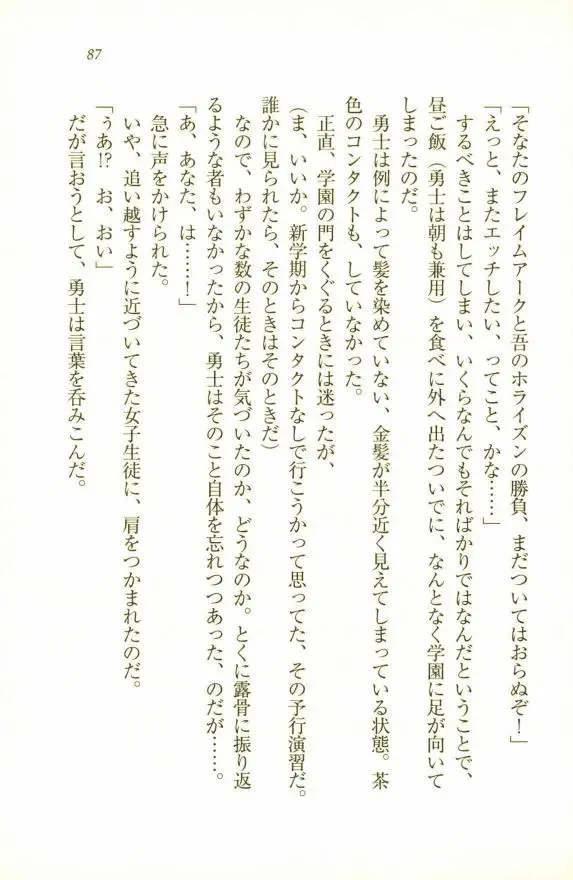 87
「そなたのフレイムアークと吾のホライズンの勝負、まだついてはおらぬぞ！」
「えっと、またエッチしたい、ってこと、かな……」
するべきことはしてしまい、いくらなんでもそればかりではなんだということで、
昼ご飯（勇士は朝も兼用）を食べに外へ出たついでに、なんとなく学園に足が向いて
しまったのだ。
勇士は例によって髪を染めていない、金髪が半分近く見えてしまっている状態。茶
色のコンタクトも、していなかった。
正直、学園の門をくぐるときには迷ったが、
（ま、いいか。新学期からコンタクトなしで行こうかって思ってた、その予行演習だ。
誰かに見られたら、そのときはそのときだ）
なので、わずかな数の生徒たちが気づいたのか、どうなのか。とくに露骨に振り返
るような者もいなかったから、勇士はそのこと自体を忘れつつあった、のだが……。
「あ、あなた、は……！」
急に声をかけられた。
いや、追い越すように近づいてきた女子生徒に、肩をつかまれたのだ。
「ぅあ!?　お、おい」
だが言おうとして、勇士は言葉を呑みこんだ。